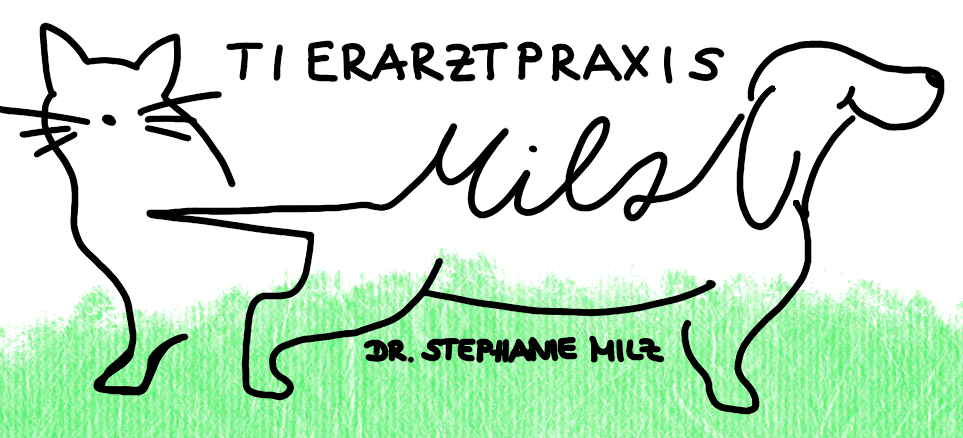 TIERARZTPRAXIS
Milz
DR. STEPHANIE MILZ